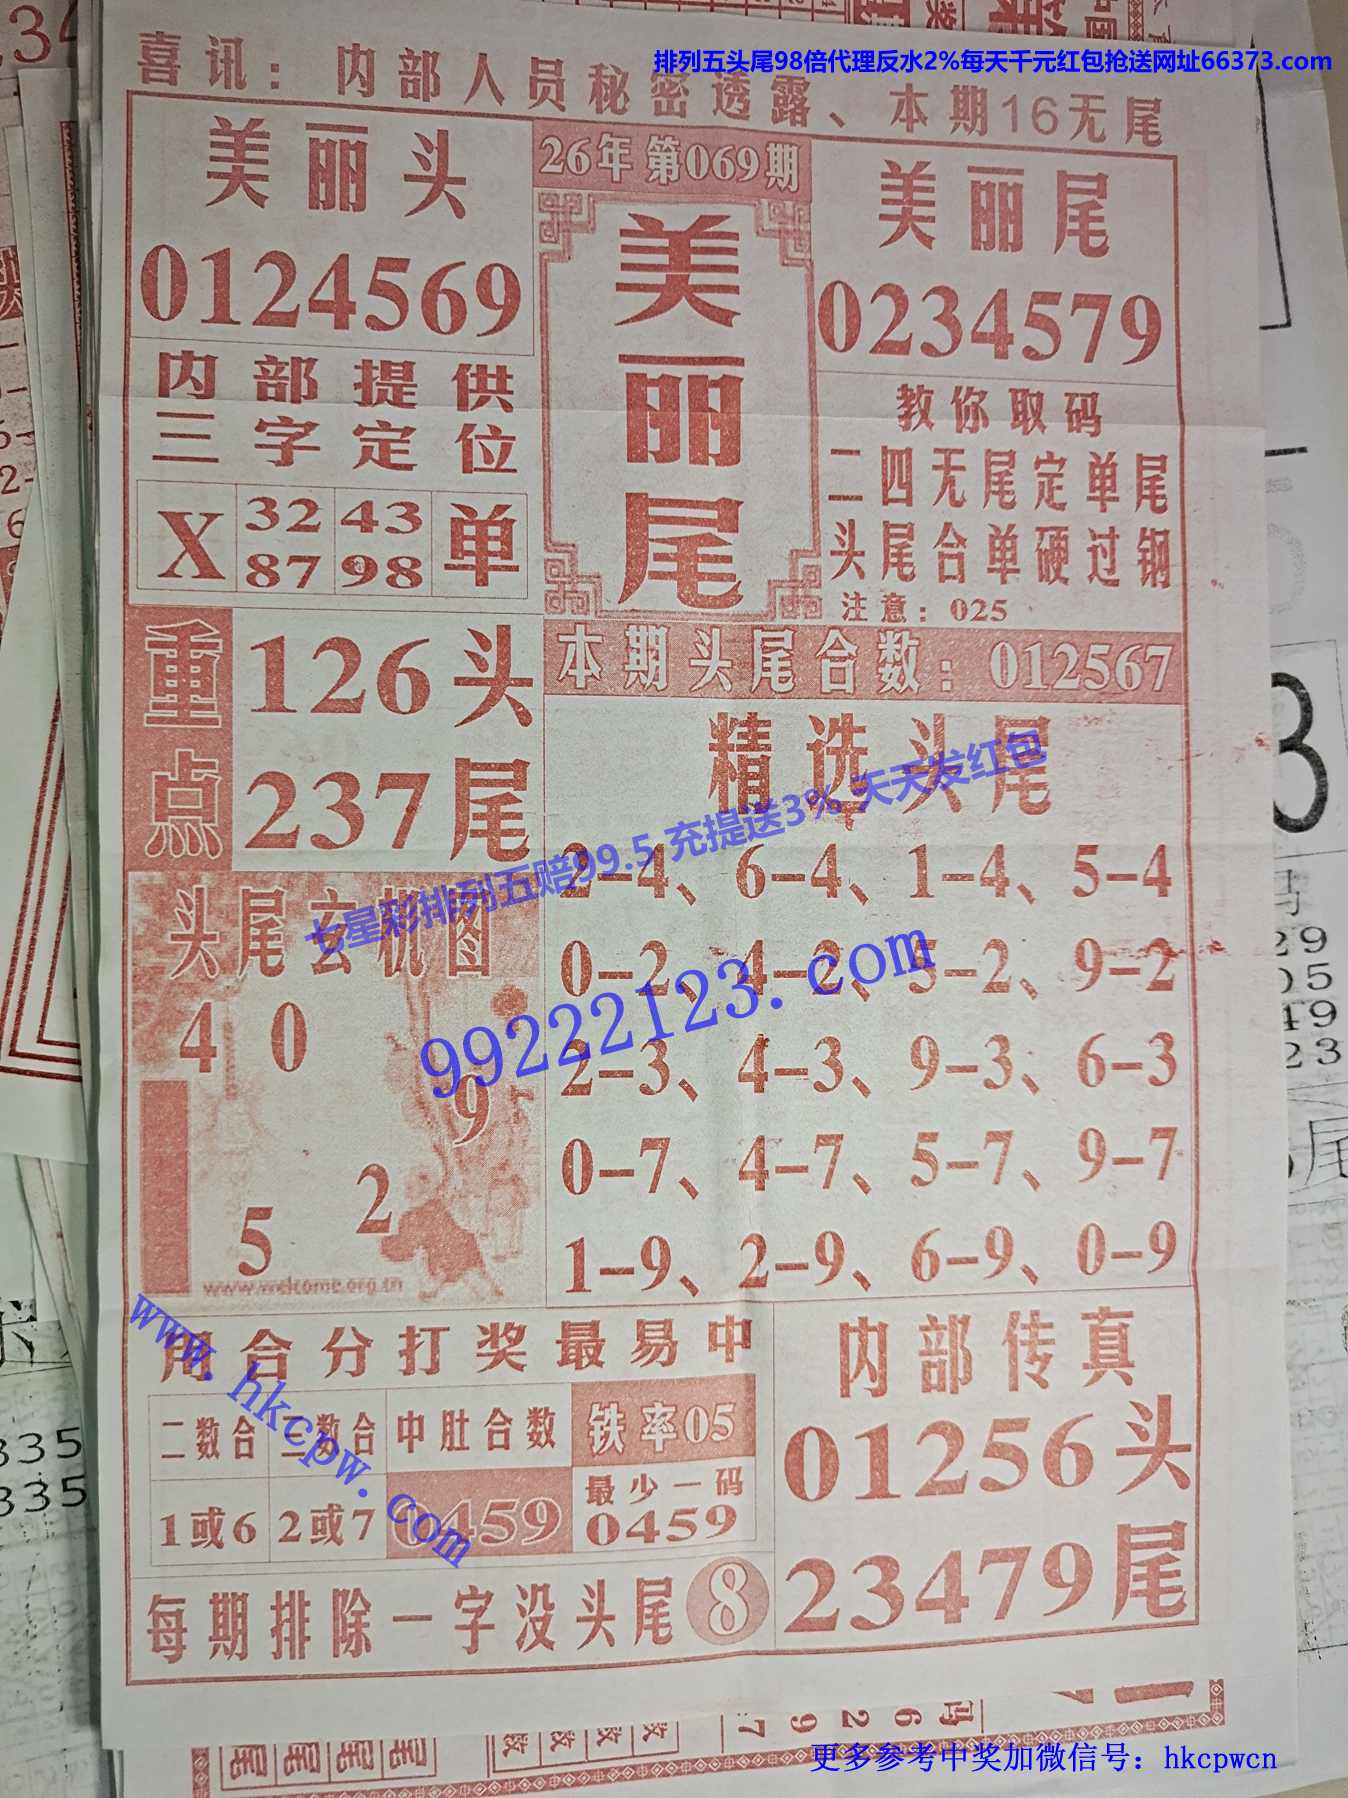 排列五头尾98倍代理反水2%每天千元红包抢送网址66373.com
喜讯：内部人员秘密透露、本期16无尾
美丽头
0124569
26年第069期
美丽尾
美丽尾
0234579
内部提供
三字定位
X 32 43 单
87 98
教你取码
二四无尾定单尾
头尾合单硬过钢
注意：025
重点
126头
237尾
本期头尾合数：012567
精选头尾
2-4、6-4、1-4、5-4
0-2、4-2、5-2、9-2
2-3、4-3、9-3、6-3
0-7、4-7、5-7、9-7
1-9、2-9、6-9、0-9
七星彩排列五赔99.5 充提送3% 天天发红包
99222123.com
头尾玄机图
4 0
9
2
5
www.welcome.org.cn
www.hkcpw.com
用合分打奖最易中
二数合 三数合 中肚合数 铁率05
1或6 2或7 0459 最少一码
0459
每期排除一字没头尾 8
内部传真
01256头
23479尾
更多参考中奖加微信号：hkcpwcn